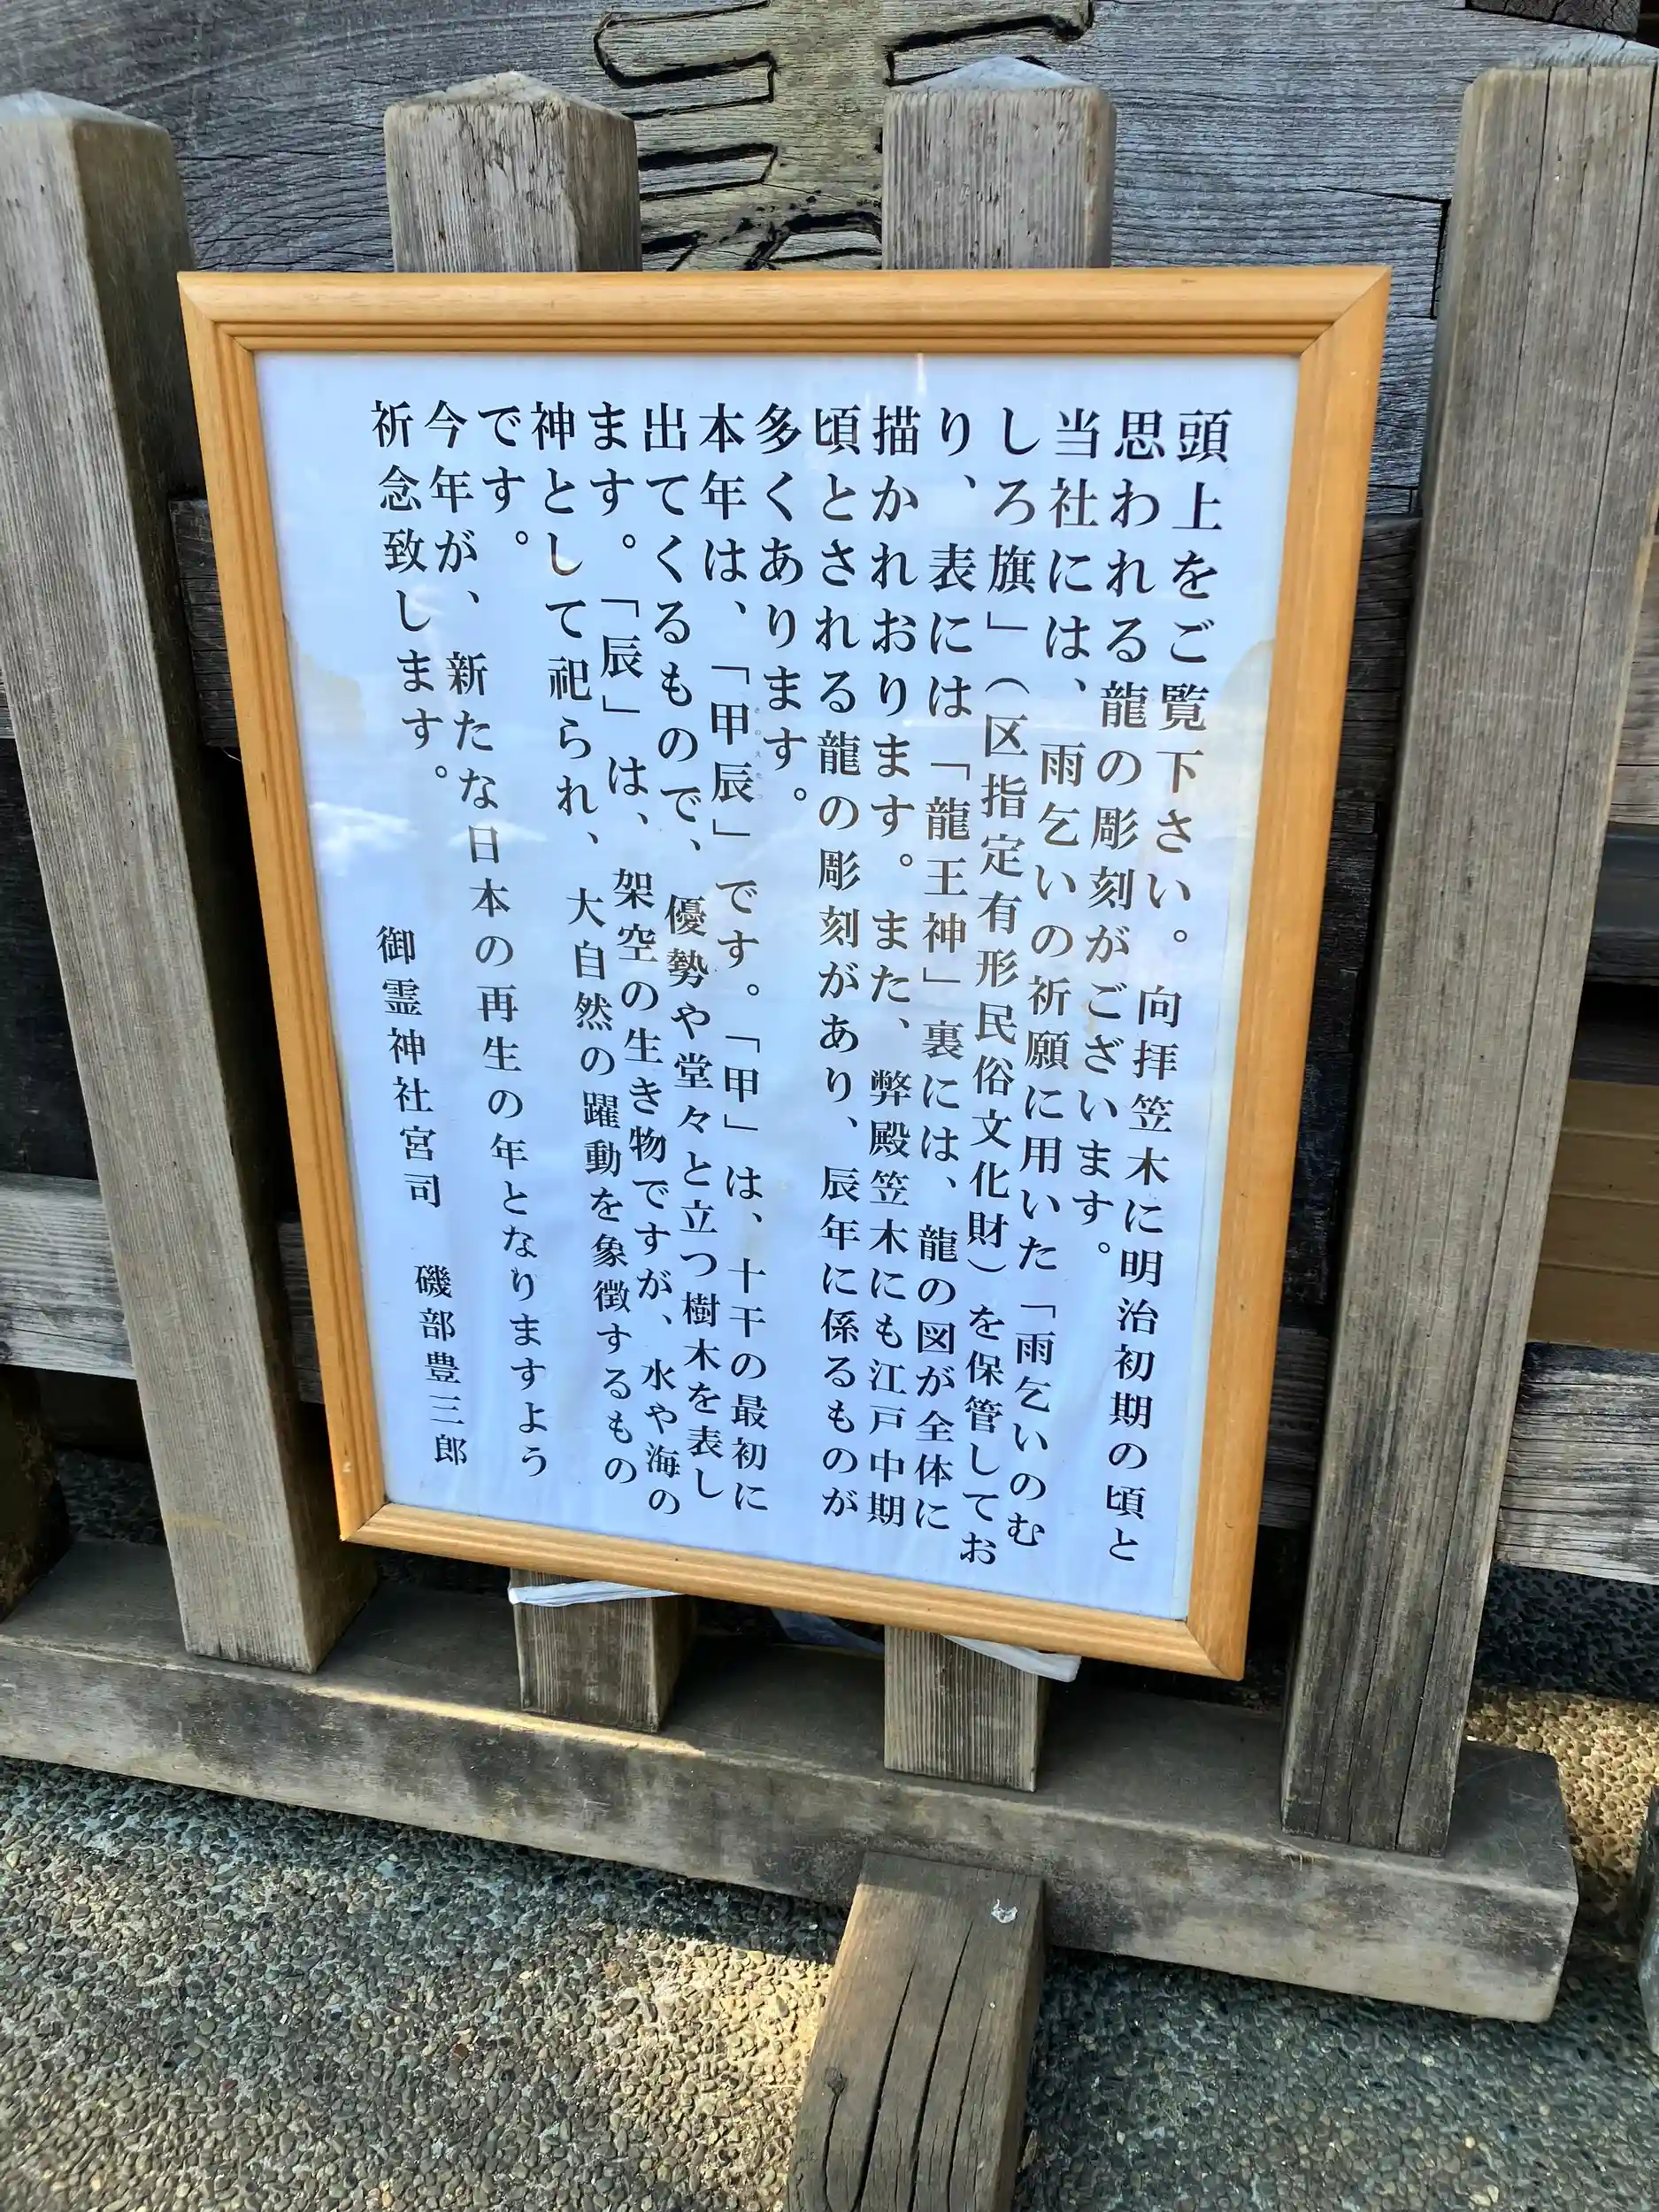 頭上をご覧下さい。向拝笠木に明治初期の頃と
思われる龍の彫刻がございます。
当社には、雨乞いの祈願に用いた「雨乞いのむ
しろ旗」（区指定有形民俗文化財）を保管してお
り、表には「龍王神」裏には、龍の図が全体に
描かれおります。また、弊殿笠木にも江戸中期
頃とされる龍の彫刻があり、辰年に係るものが
多くあります。
本年は、「甲辰」です。「甲」は、十干の最初に
出てくるもので、優勢や堂々と立つ樹木を表し
ます。「辰」は、架空の生き物ですが、水や海の
神として祀られ、大自然の躍動を象徴するもの
です。
今年が、新たな日本の再生の年となりますよう
祈念致します。
御霊神社宮司　磯部豊三郎